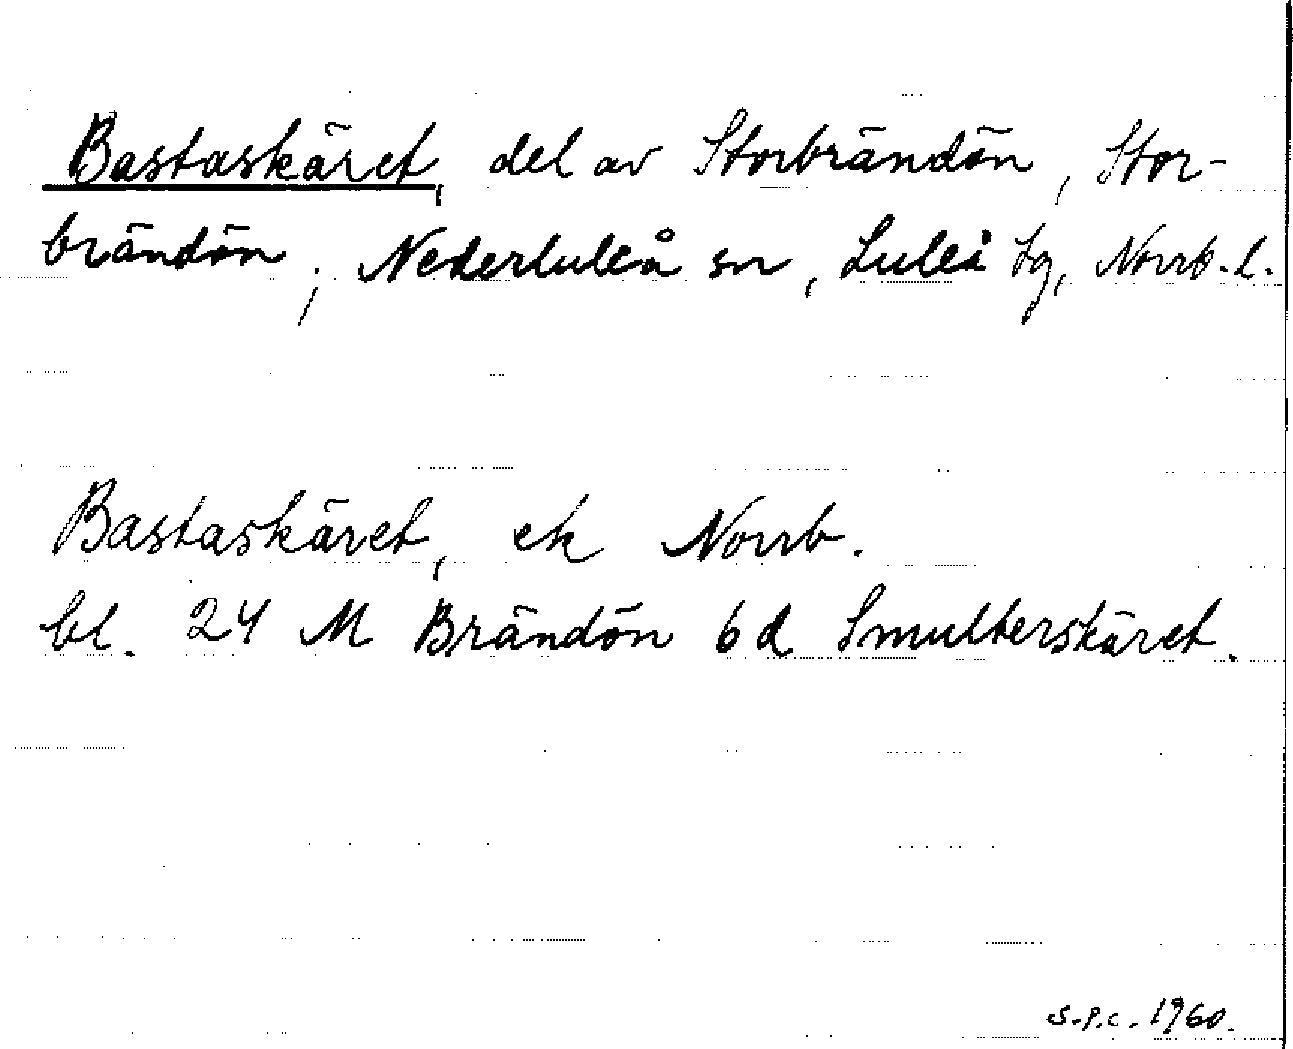 Bastaskäret, del av Storbrändön, Stor-
brändön, Nederluleå sn, Luleå tg, Norrb. l.
Bastaskäret, ek Norrb.
bl. 24 M Brändön 6d Smulterskäret.
S.P.C. 1960.